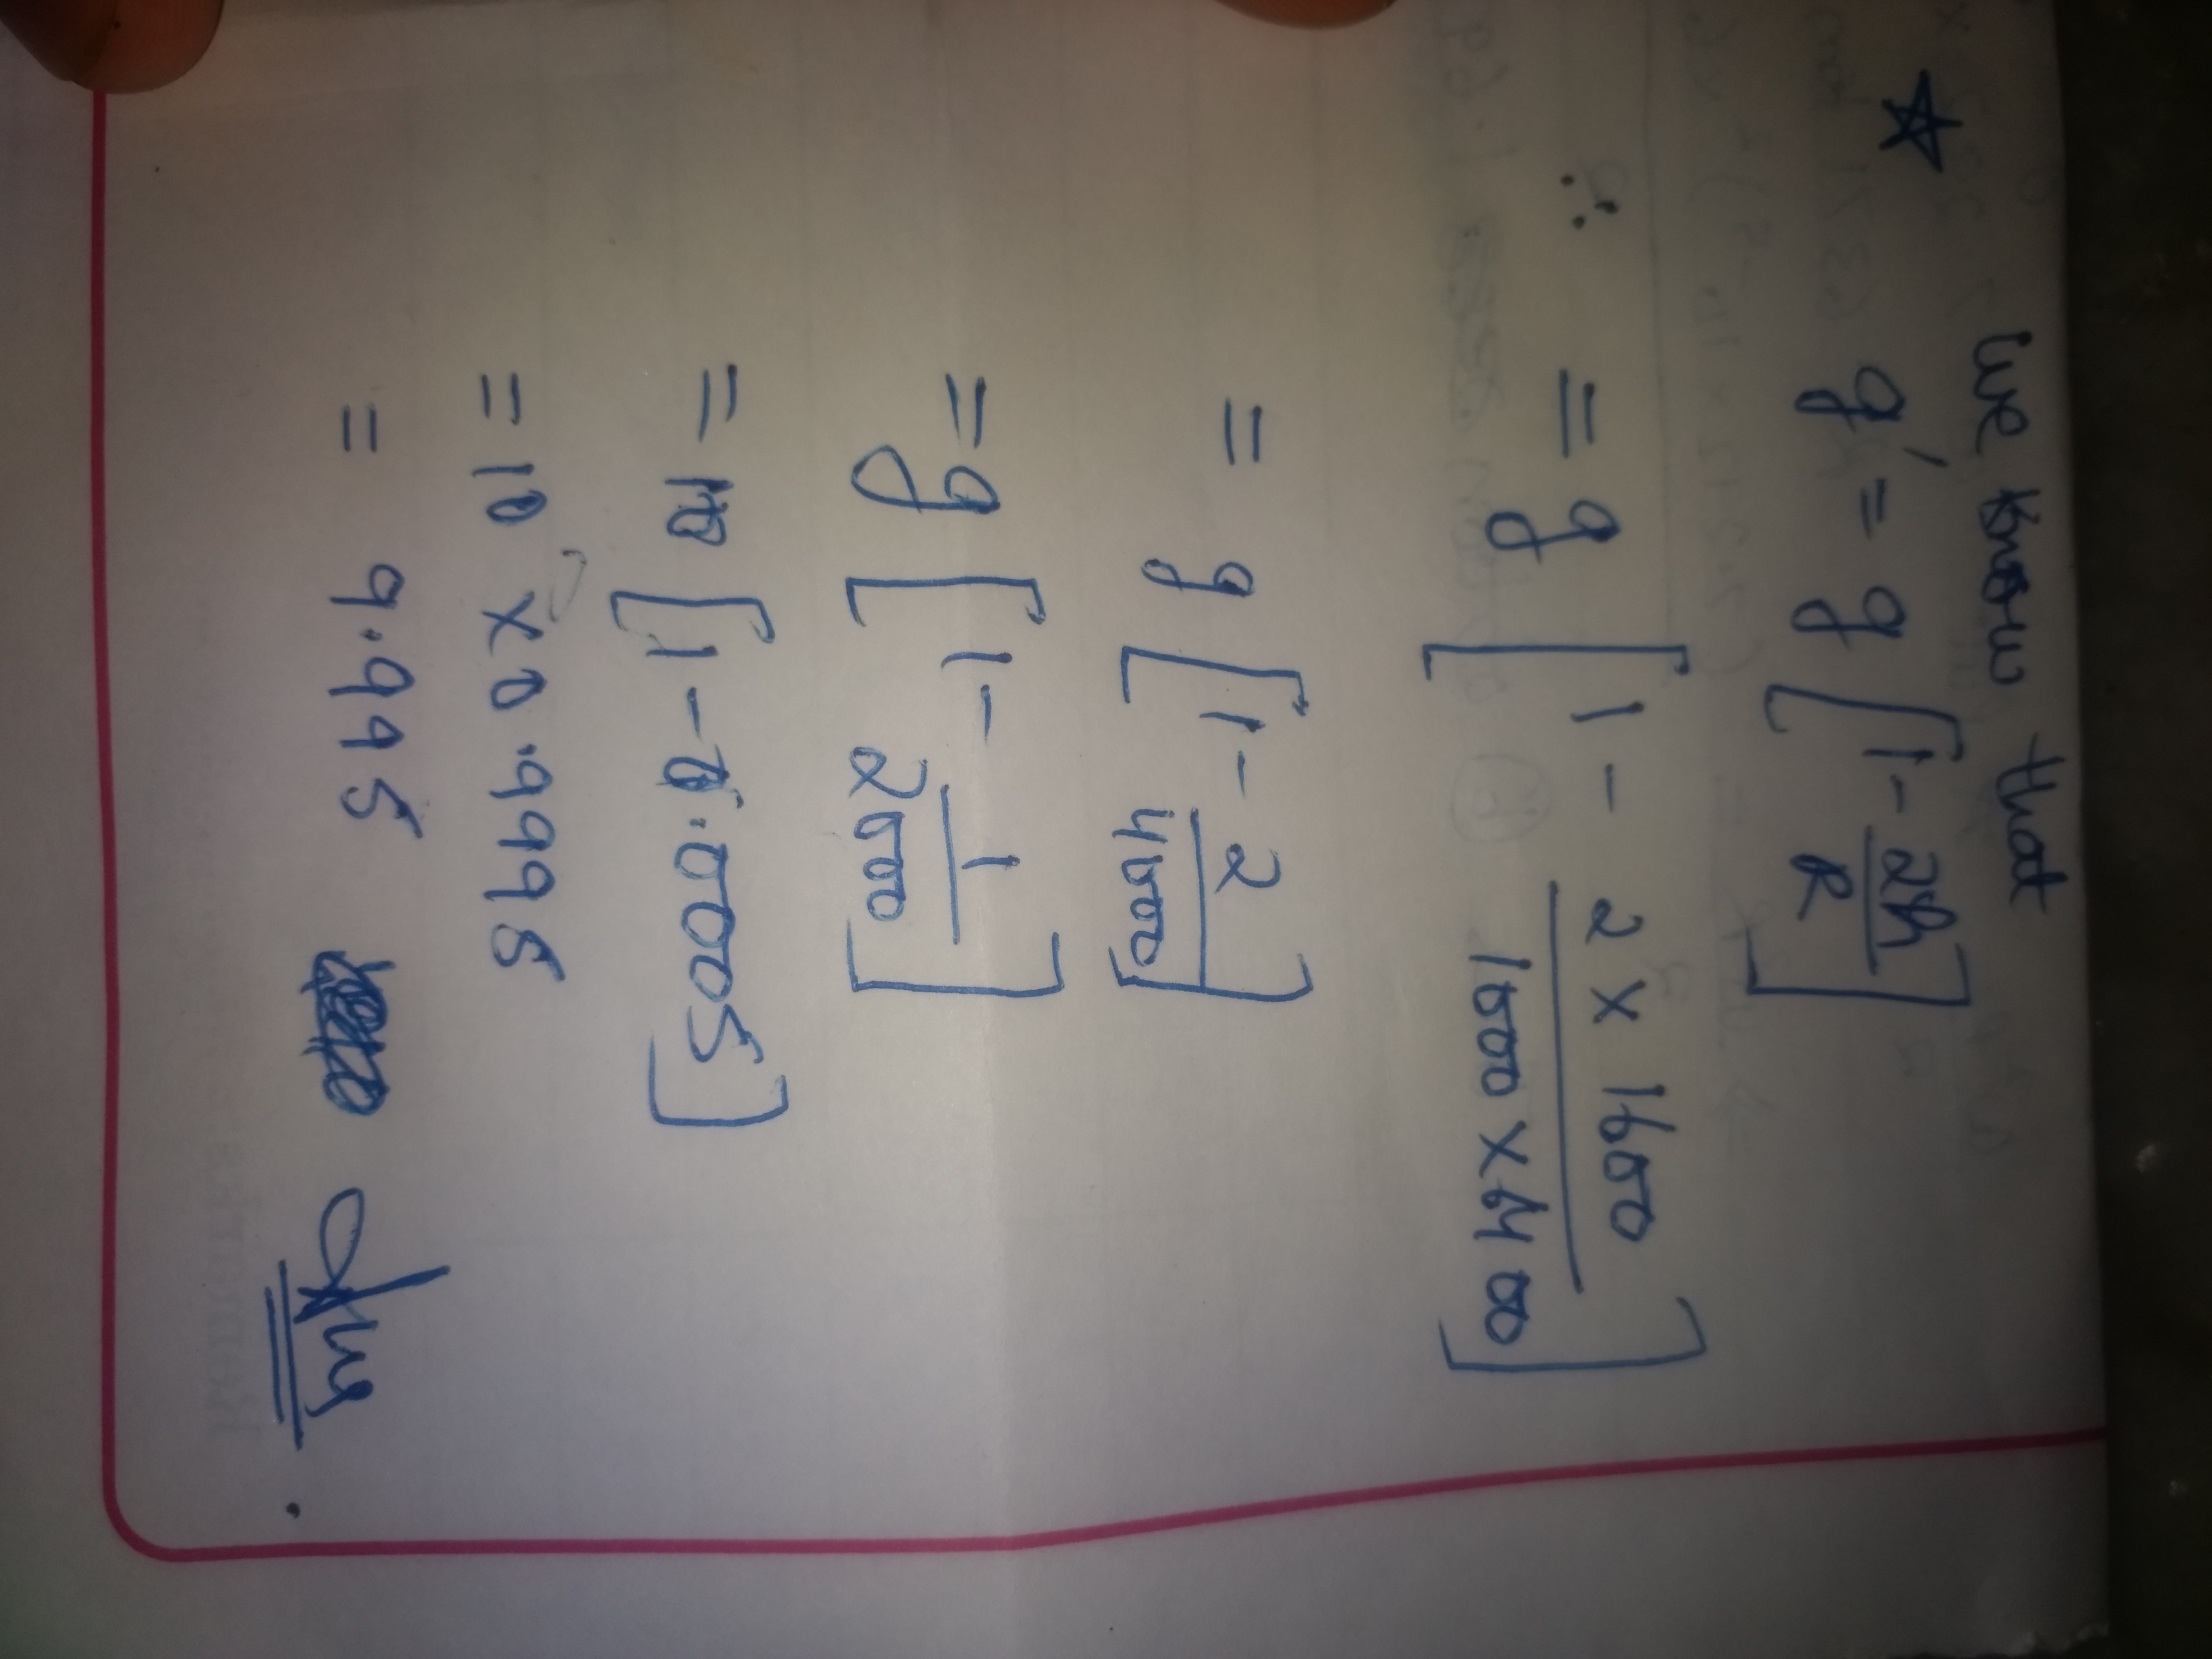 ☆ We know that
g' = g [1 - 2h/R]
∴ = g [1 - 2 x 1600 / 1000 x 6400]
= g [1 - 2/4000]
= g [1 - 1/2000]
= 10 [1 - 0.0005]
= 10 x 0.9995
= 9.995 Ans.